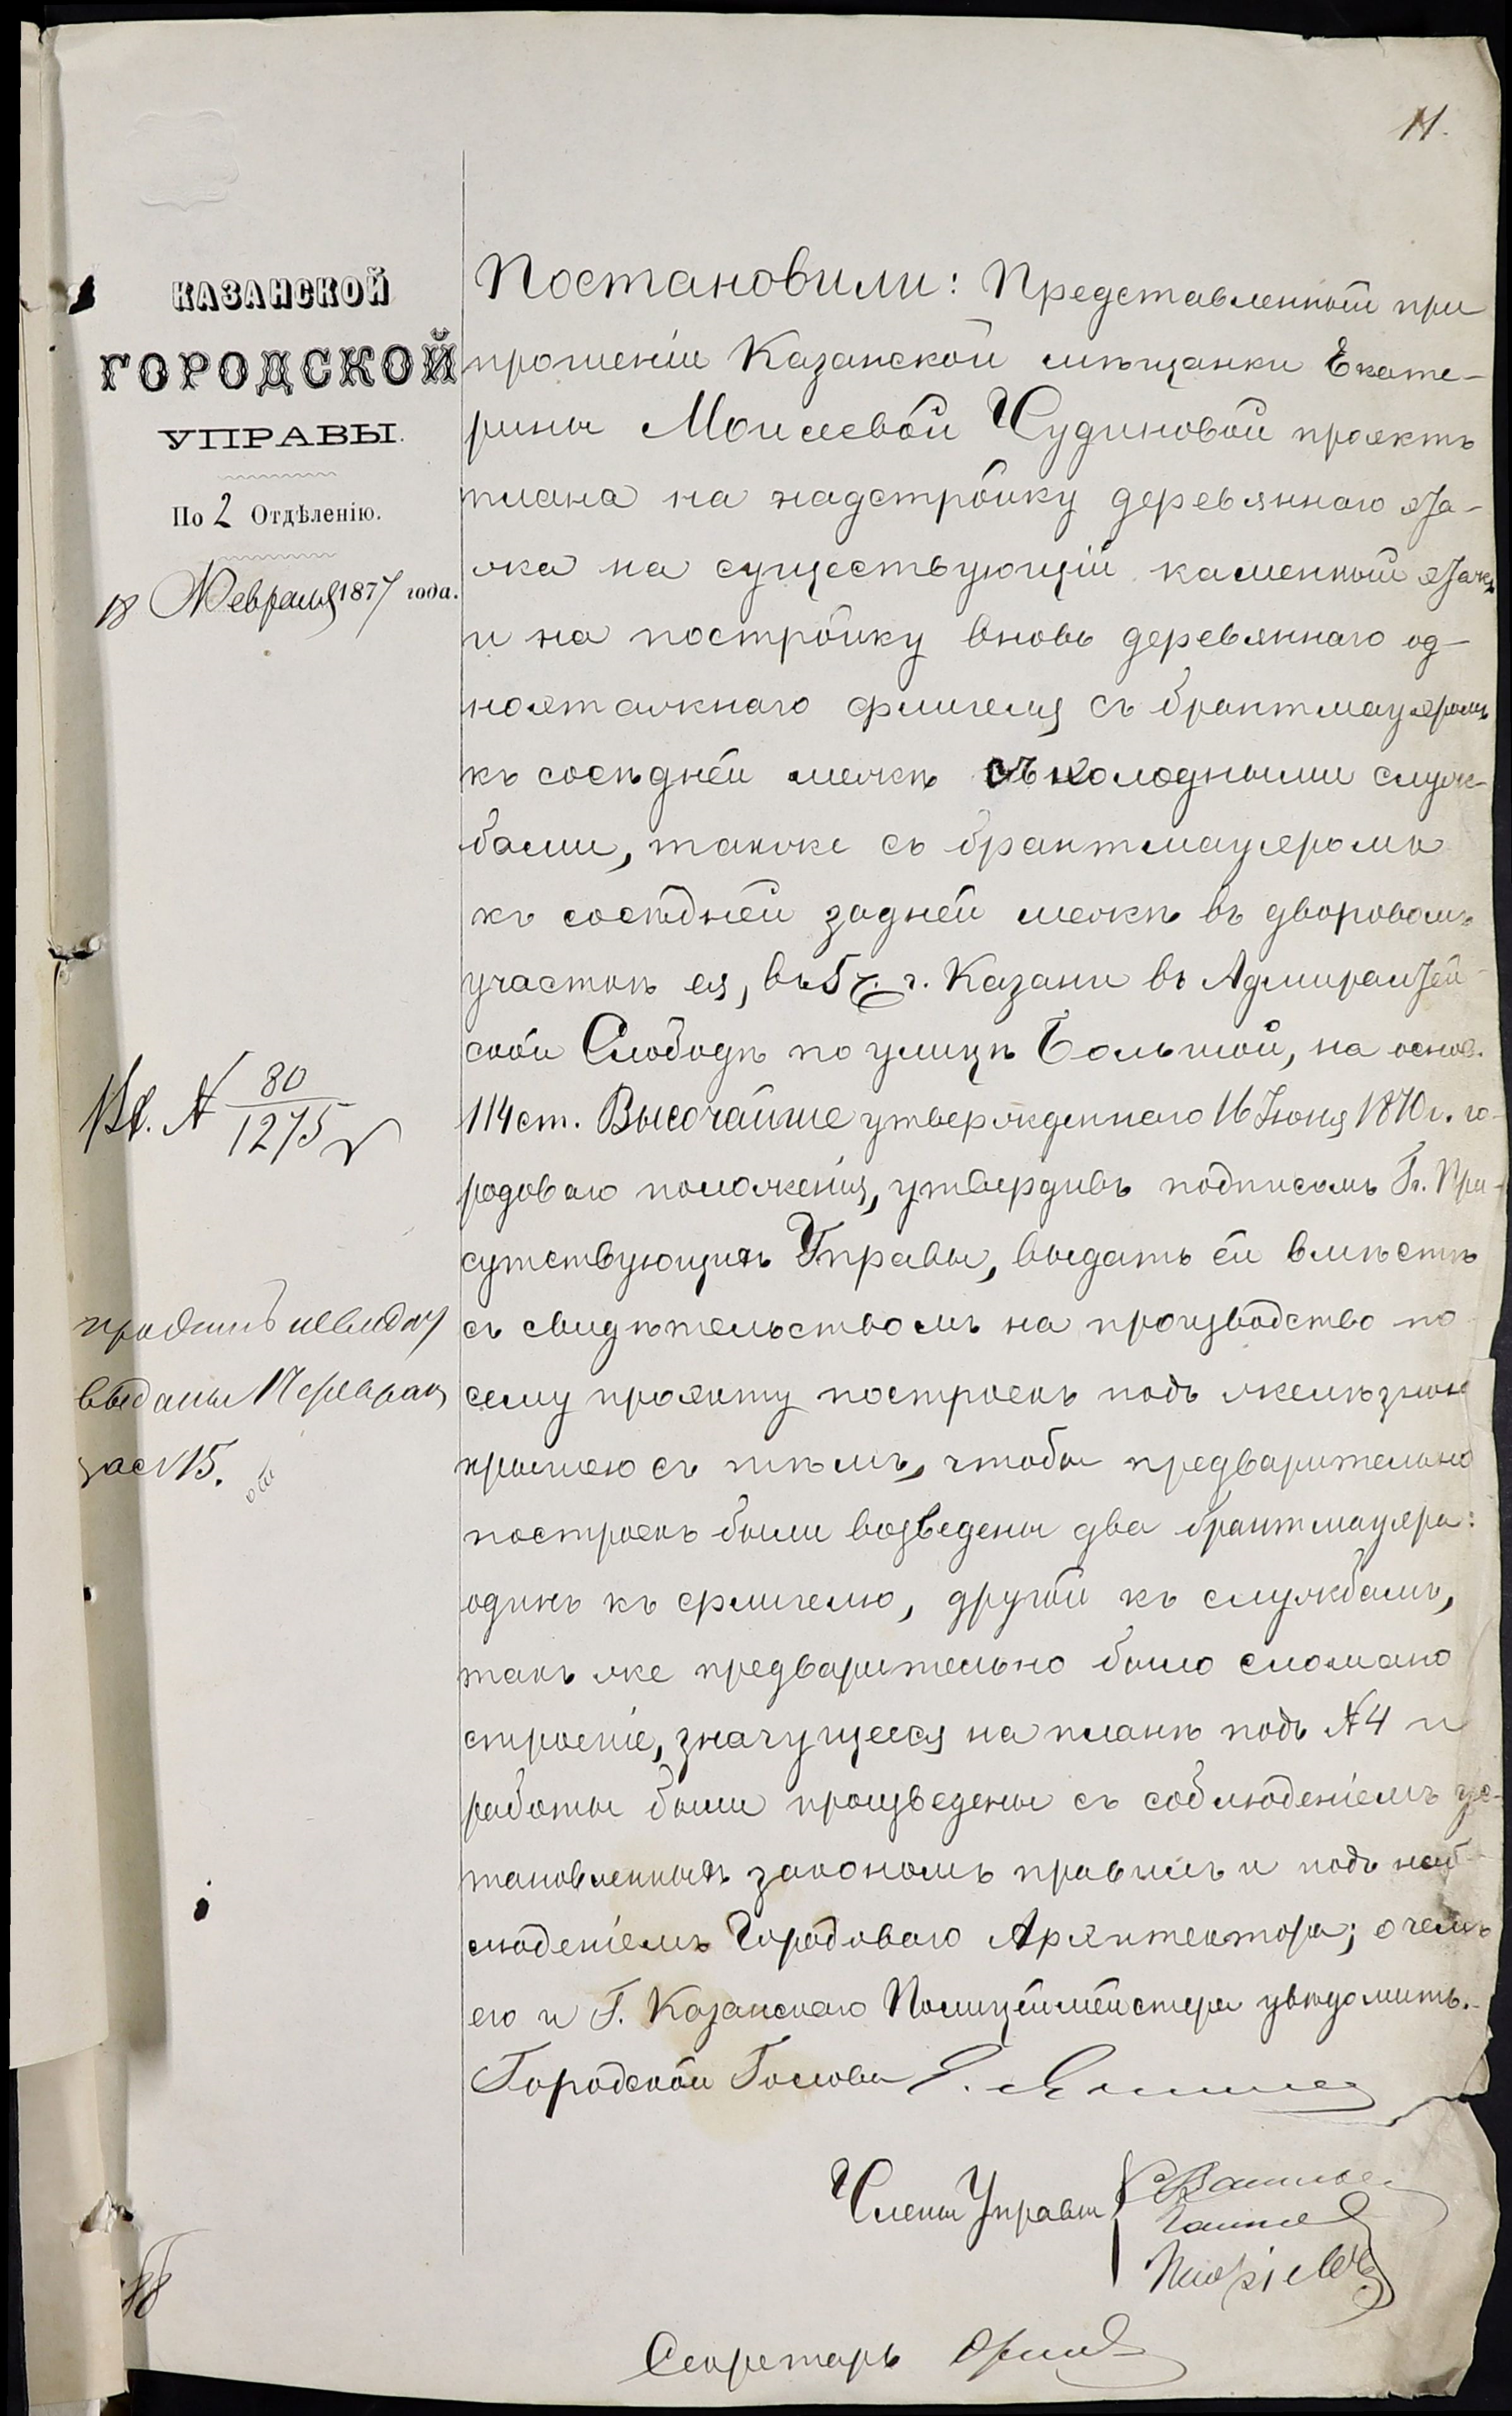 11.
КАЗАНСКОЙ
ГОРОДСКОЙ
УПРАВЫ.
По 2 Отдѣленію.
18 Февраля 1877 года.
Вх. № 80/1275
выданы 17 февраля
за № 15.
Постановили: Представленный при
прошеніи Казанской мѣщанки Екате-
рины Моисеевой Чудиновой проэктъ
плана на надстройку деревяннаго эта-
жа на существующій каменный этажъ
и на постройку вновь деревяннаго од-
ноэтажнаго флигеля съ брантмауэромъ
къ сосѣдней межѣ съ холодными служ-
бами, также съ брантмауэромъ
къ сосѣдней задней межѣ въ дворовомъ
участкѣ ея, въ 5 ч. г. Казани въ Адмиралтей-
ской Слободѣ по улицѣ Большой, на основ.
114 ст. Высочайше утвержденнаго 16 Іюня 1870 г. го-
родоваго положенія, утвердивъ подписомъ Гг. При-
сутствующихъ Управы, выдать ей вмѣстѣ
съ свидѣтельствомъ на производство по
сему проэкту построекъ подъ желѣзною
крышею съ тѣмъ, чтобы предварительно
построекъ были возведены два брантмауэра:
одинъ къ флигелю, другой къ службамъ,
такъ же предварительно было сломано
строеніе, значущееся на планѣ подъ № 4 и
работы были произведены съ соблюденіемъ ус-
тановленныхъ закономъ правилъ и подъ наб-
людениемъ Городоваго Архитектора; о чемъ
его и Г. Казанскаго Полицеймейстера увѣдомить.
Городской Голова
Члены Управы
Секретарь